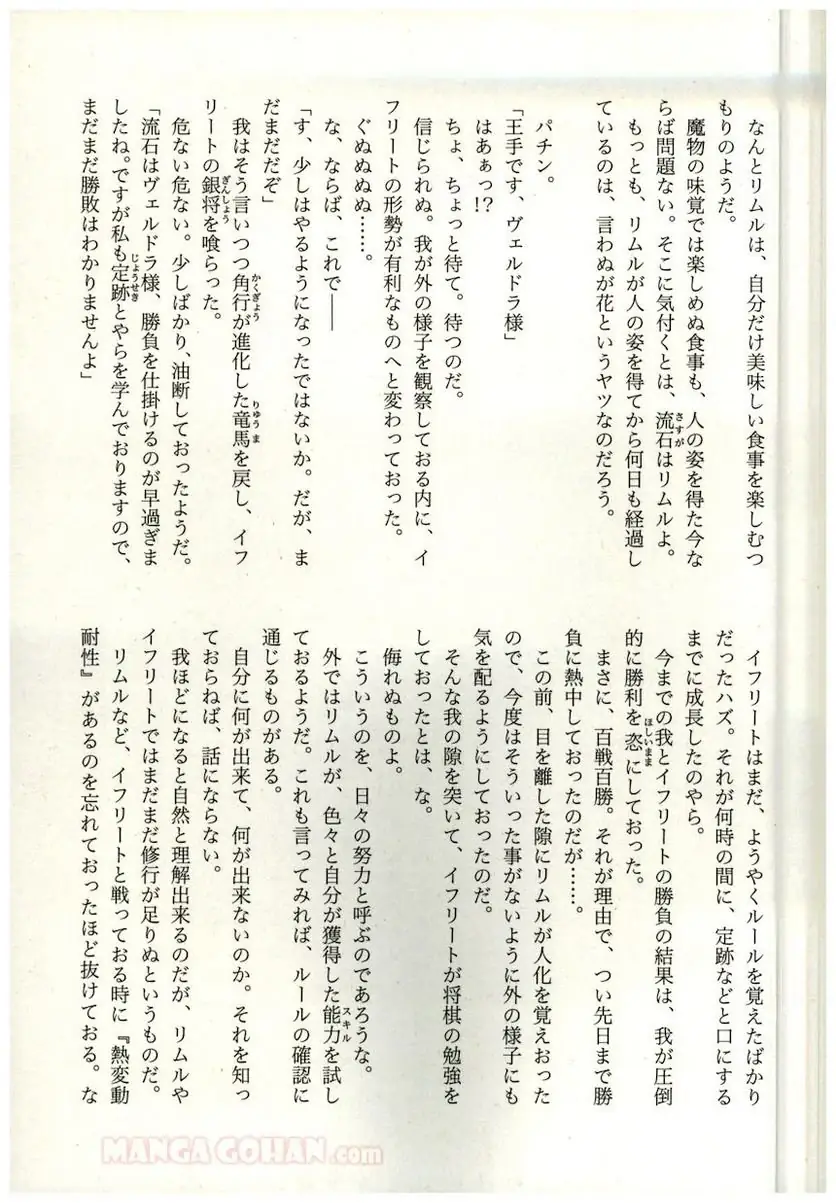 なんとリムルは、自分だけ美味しい食事を楽しむつ
もりのようだ。
魔物の味覚では楽しめぬ食事も、人の姿を得た今な
らば問題ない。そこに気付くとは、流石はリムルよ。
もっとも、リムルが人の姿を得てから何日も経過し
ているのは、言わぬが花というヤツなのだろう。
パチン。
「王手です、ヴェルドラ様」
はあぁっ!?
ちょ、ちょっと待て。待つのだ。
信じられぬ。我が外の様子を観察しておる内に、イ
フリートの形勢が有利なものへと変わっておった。
ぐぬぬぬぬ……。
な、ならば、これで――
「す、少しはやるようになったではないか。だが、ま
だまだだぞ」
我はそう言いつつ角行が進化した竜馬を戻し、イフ
リートの銀将を喰らった。
危ない危ない。少しばかり、油断しておったようだ。
「流石はヴェルドラ様、勝負を仕掛けるのが早過ぎま
したね。ですが私も定跡とやらを学んでおりますので、
まだまだ勝敗はわかりませんよ」
イフリートはまだ、ようやくルールを覚えたばかり
だったハズ。それが何時の間に、定跡などと口にする
までに成長したのやら。
今までの我とイフリートの勝負の結果は、我が圧倒
的に勝利を恣にしておった。
まさに、百戦百勝。それが理由で、つい先日まで勝
負に熱中しておったのだが……。
この前、目を離した隙にリムルが人化を覚えおった
ので、今度はそういった事がないように外の様子にも
気を配るようにしておったのだ。
そんな我の隙を突いて、イフリートが将棋の勉強を
しておったとは、な。
侮れぬものよ。
こういうのを、日々の努力と呼ぶのであろうな。
外ではリムルが、色々と自分が獲得した能力を試し
ておるようだ。これも言ってみれば、ルールの確認に
通じるものがある。
自分に何が出来て、何が出来ないのか。それを知っ
ておらねば、話にならない。
我ほどになると自然と理解出来るのだが、リムルや
イフリートではまだまだ修行が足りぬというものだ。
リムルなど、イフリートと戦っておる時に『熱変動
耐性』があるのを忘れておったほど抜けておる。な
MANGA GOHAN.com